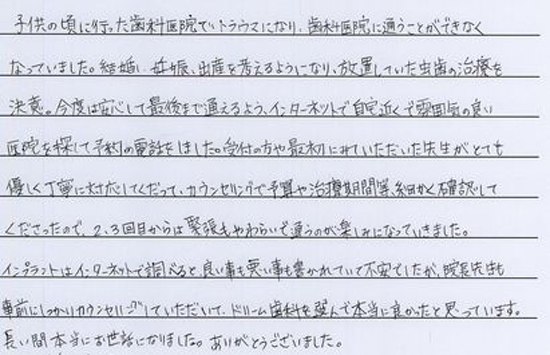 子供の頃に行った歯科医院でトラウマになり、歯科医院に通うことができなく
なっていました。結婚、妊娠、出産を考えるようになり、放置していた虫歯の治療を
決意。今度は安心して最後まで通えるよう、インターネットで自宅近くで雰囲気の良い
医院を探して予約の電話をしました。受付の方や最初にみていただいた先生がとても
優しく丁寧に対応してくださって、カウンセリングで予算や治療期間等、細かく確認して
くださったので、2、3回目からは緊張もやわらいで通うのが楽しみになっていきました。
インプラントはインターネットで調べると、良い事も悪い事も書かれていて不安でしたが、院長先生も
事前にしっかりカウンセリングしていただいて、ドリーム歯科を選んで本当に良かったと思っています。
長い間本当にお世話になりました。ありがとうございました。